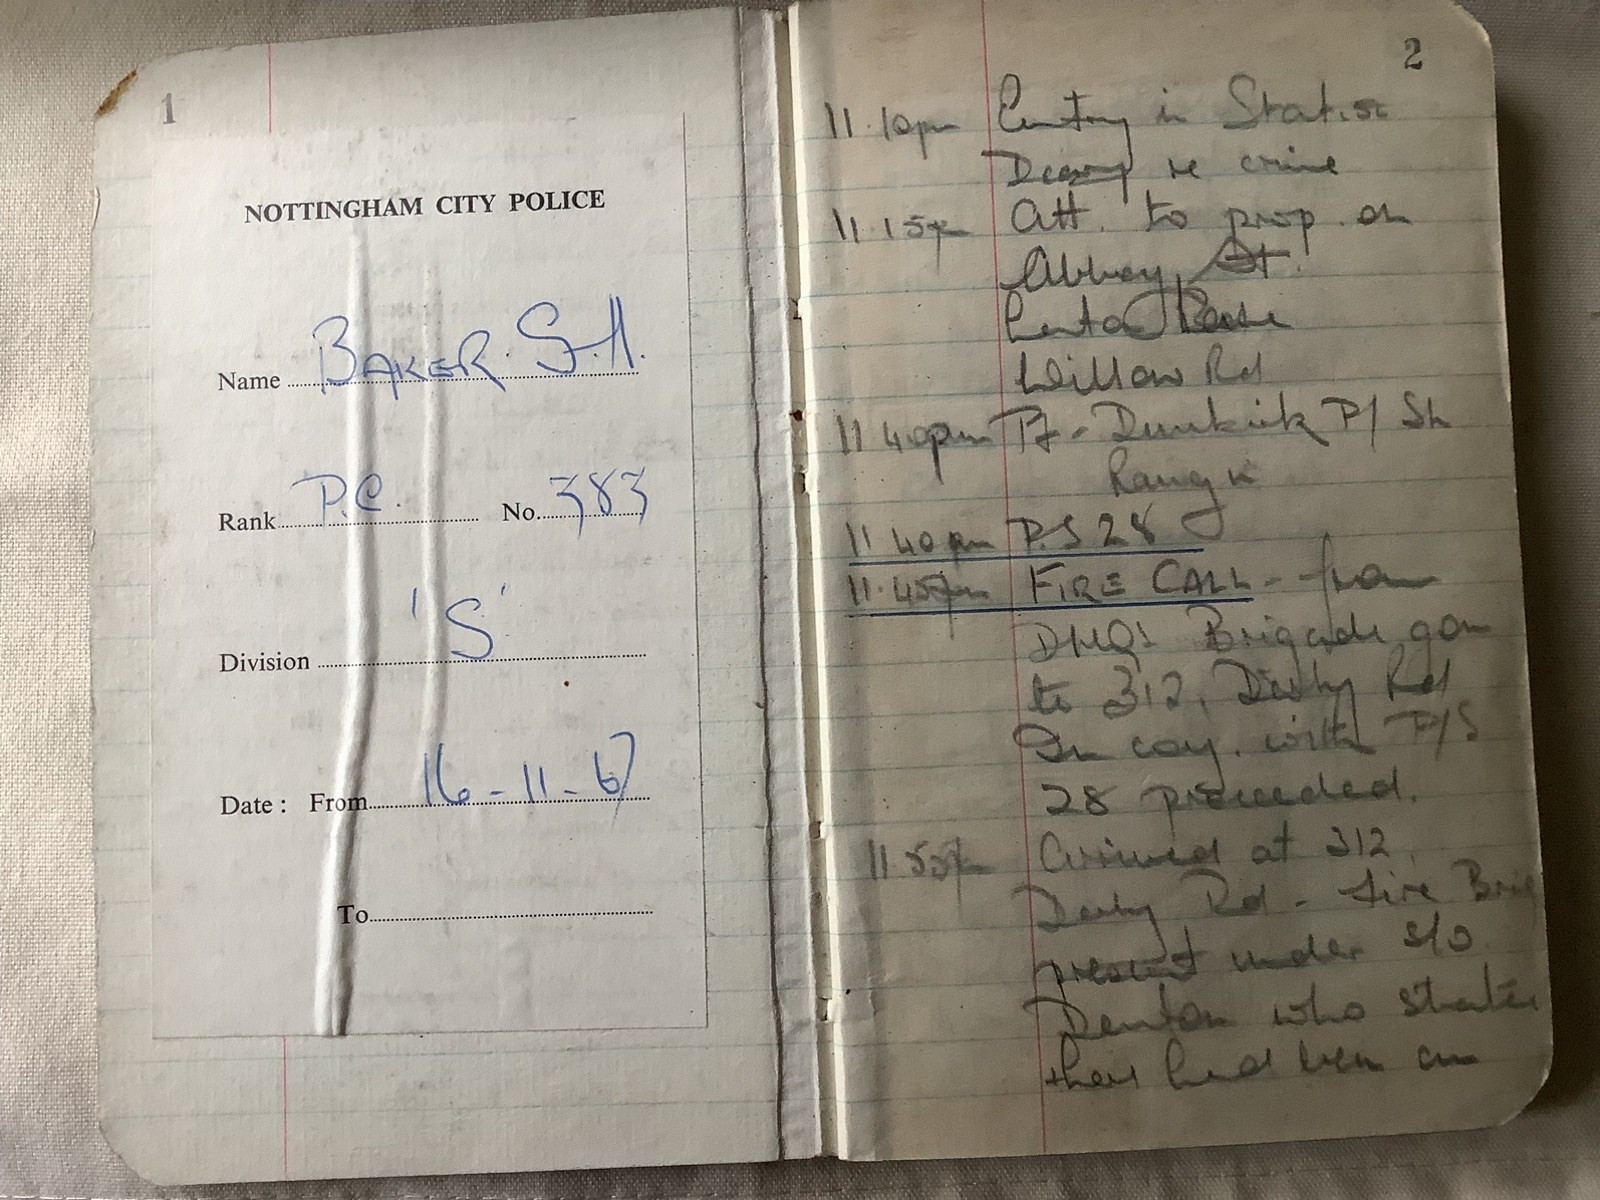 1
NOTTINGHAM CITY POLICE
Name BAKER. S.A.
Rank P.C. No. 383
Division 'S'
Date: From 16-11-67
To
2
11.10pm Entry in Station
Diary re crime
11.15pm Att. to prop. on
Abbey St.
Lenton
Willow Rd
11 40pm Pt - Dunkirk P/ Stn
11 40pm P.S 28
11.45pm FIRE CALL - from
DHQ! Brigade gon
to 312, Derby Rd
In coy. with P/S
28 proceeded.
11 55pm Arrived at 312,
Derby Rd - Fire Brig
present under S/O
Denton who stated
there had been an